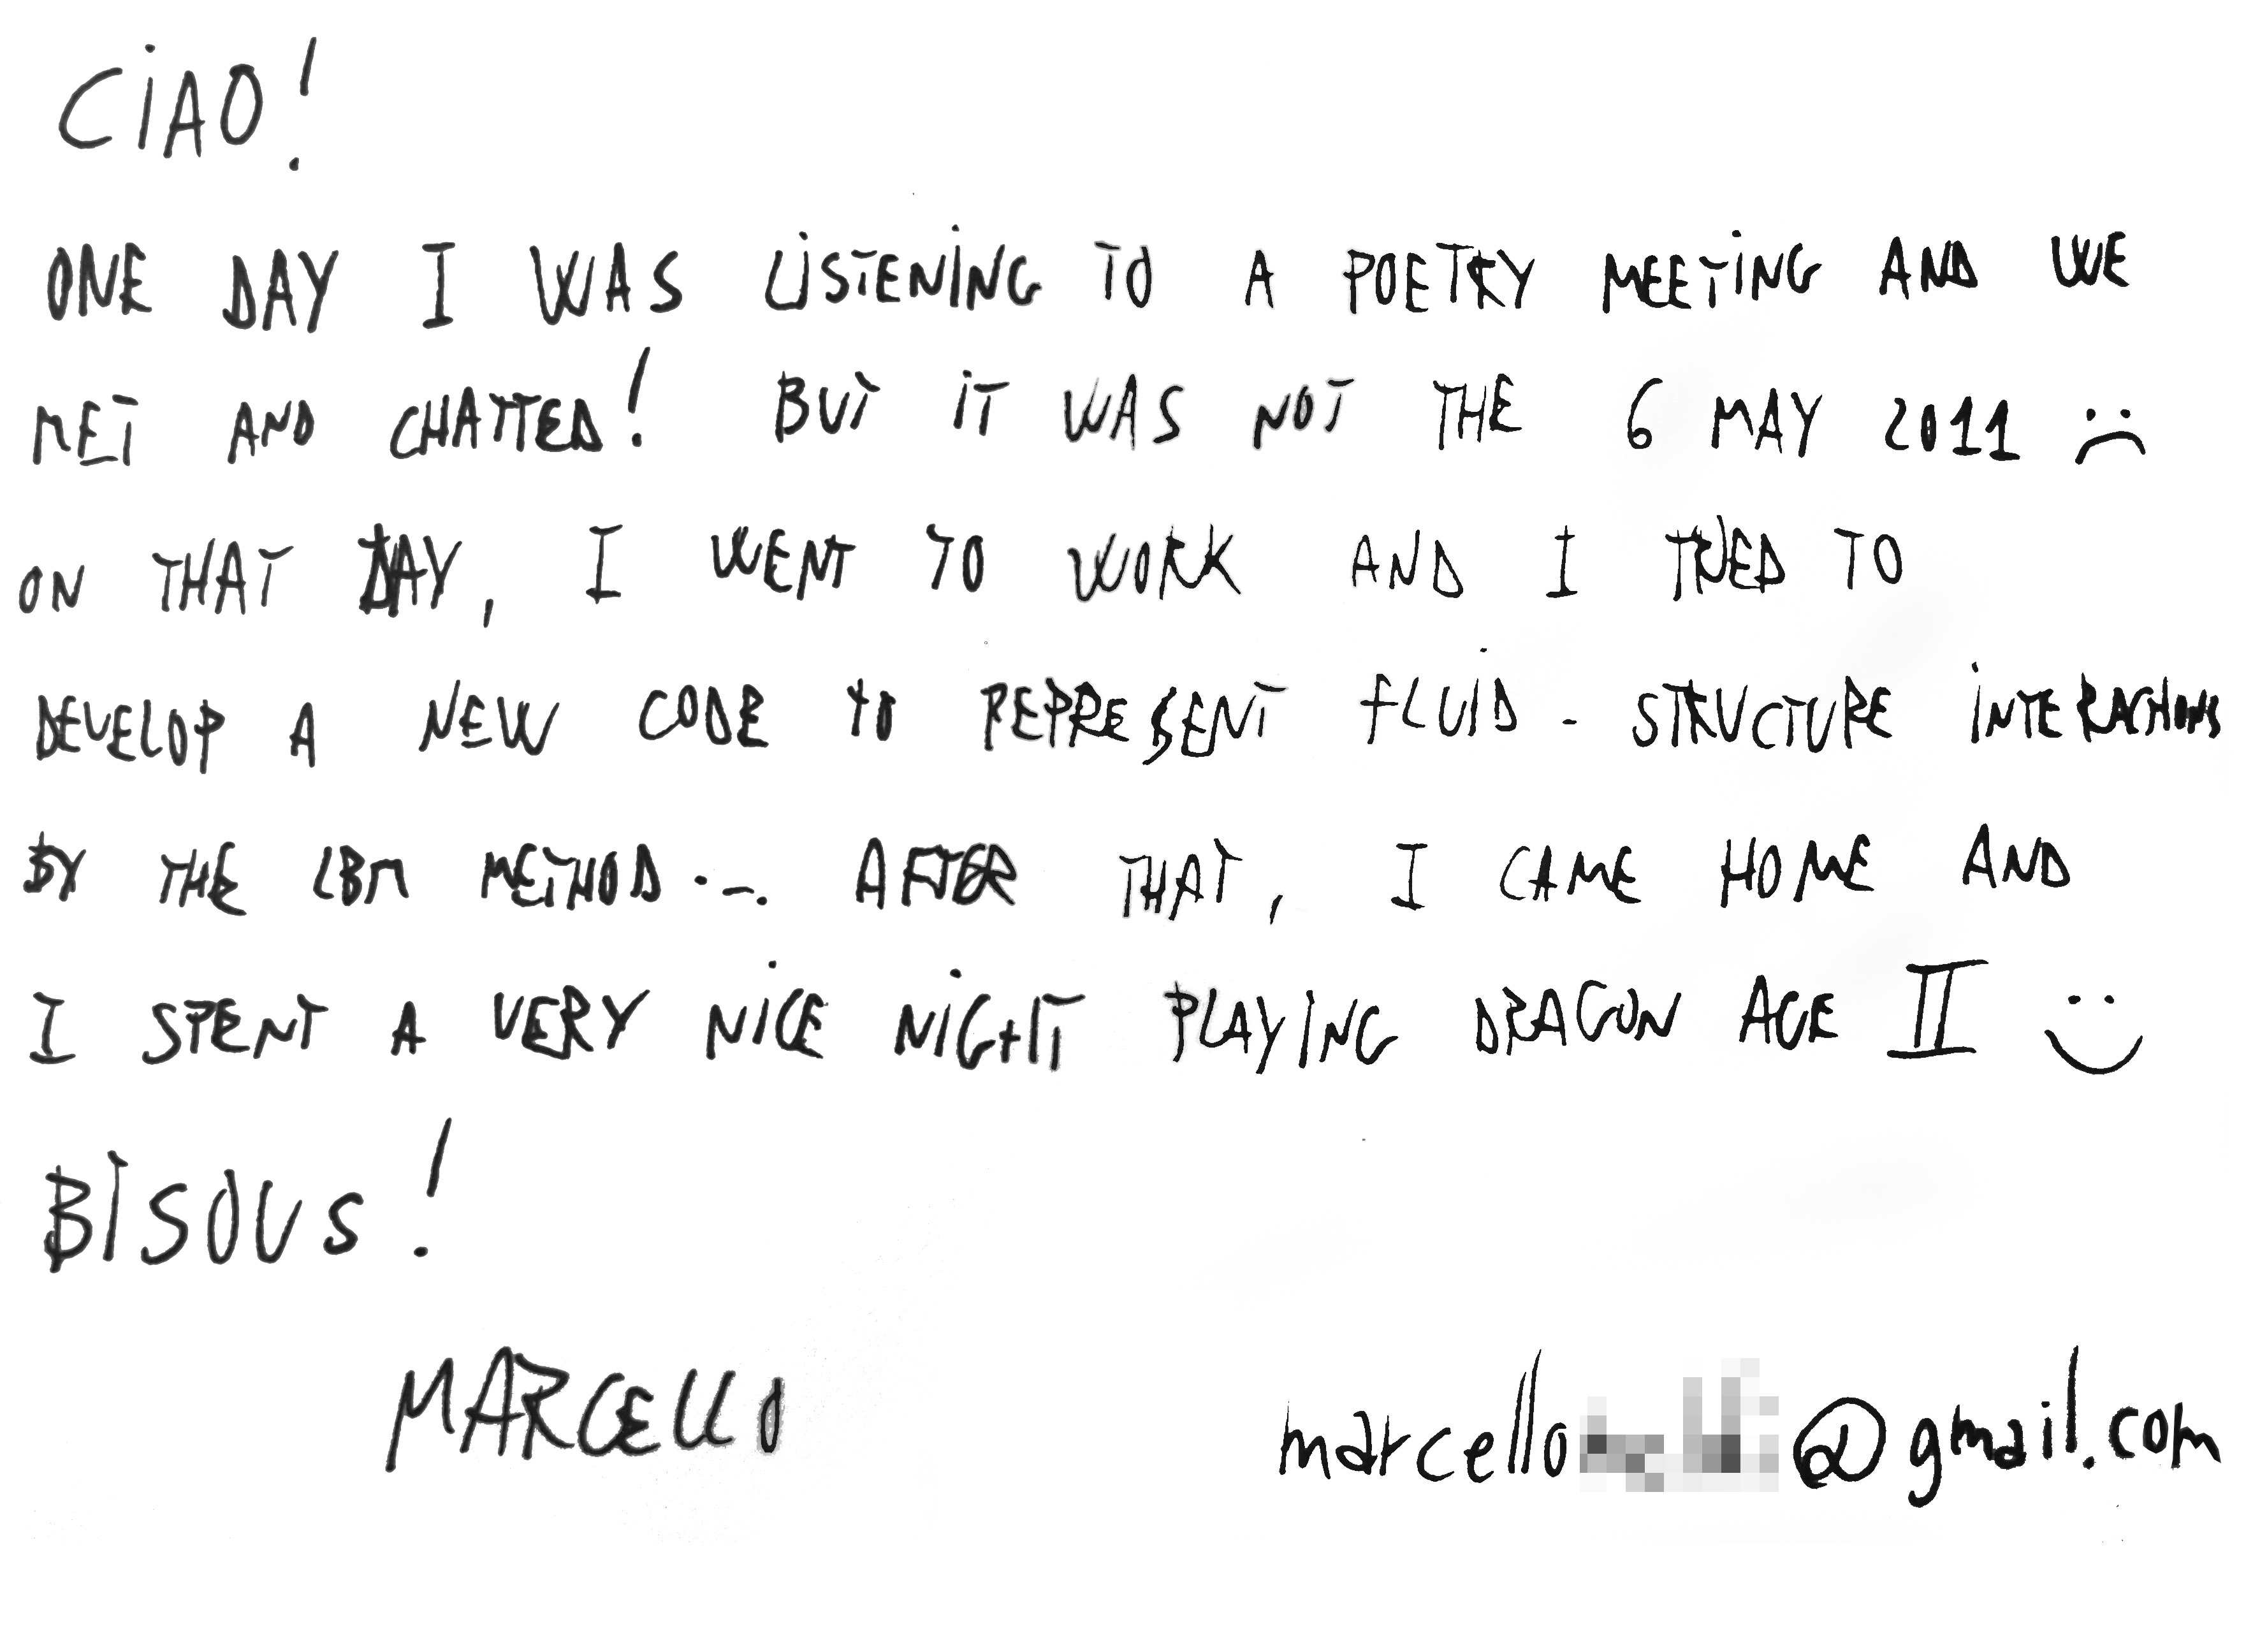 CiAO!
ONE DAY I WAS LISTENING TO A POETRY MEETING AND WE
MET AND CHATTED! BUT IT WAS NOT THE 6 MAY 2011 :(
ON THAT DAY, I WENT TO WORK AND I TRIED TO
DEVELOP A NEW CODE TO REPRESENT FLUID - STRUCTURE INTERACTIONS
BY THE LBM METHOD... AFTER THAT, I CAME HOME AND
I SPENT A VERY NICE NIGHT PLAYING DRAGON AGE II :)
BISOUS!
MARCELLO marcello @gmail.com